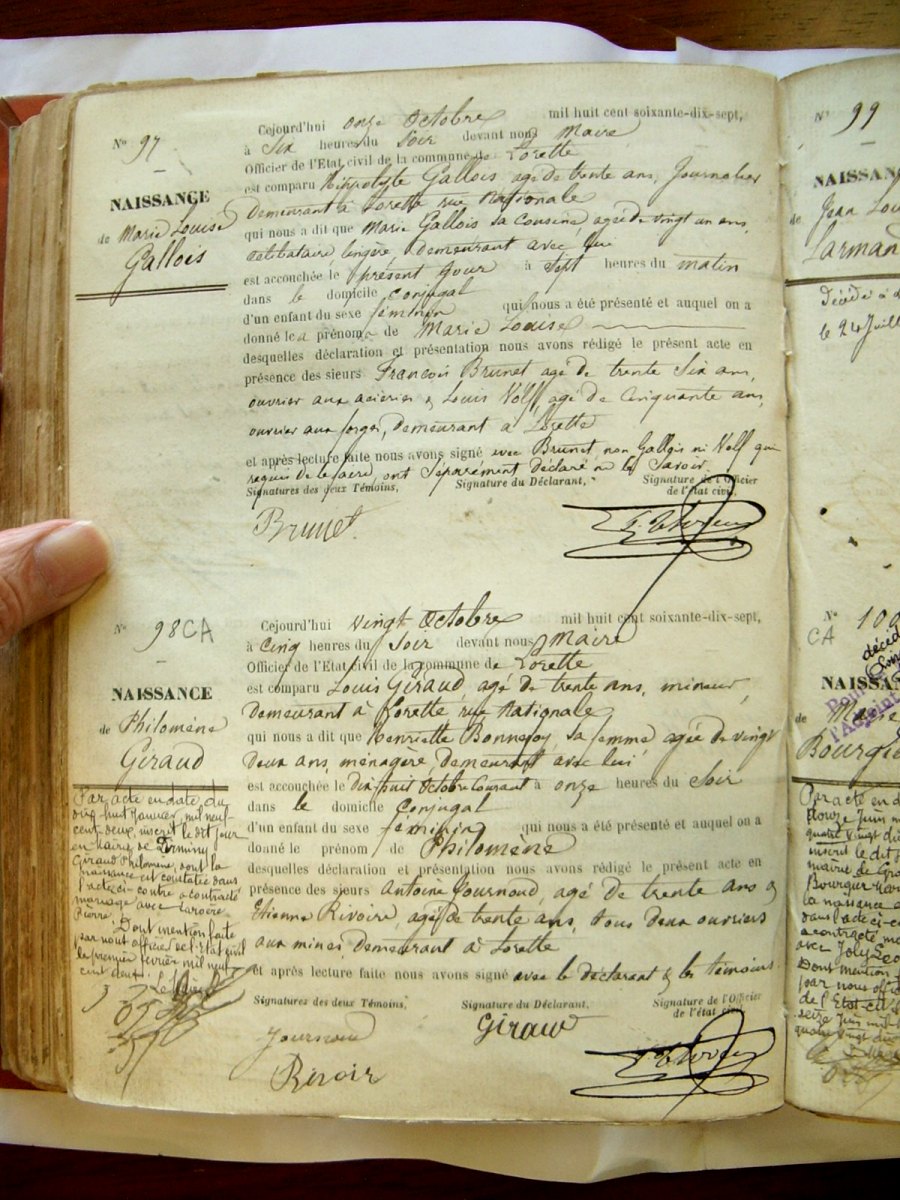 N° 97
NAISSANCE
de Marie Louise
Gallois
Cejourd'hui onze Octobre mil huit cent soixante-dix-sept,
à Six heures du Soir devant nous Maire
Officier de l'Etat civil de la commune de Lorette
est comparu Hippolyte Gallois agé de trente ans, Journalier
demeurant à Lorette rue Nationale
qui nous a dit que Marie Gallois sa Cousine, agée de vingt un ans,
célibataire, lingère, demeurant avec lui
est accouchée le présent jour à Sept heures du matin
dans le domicile Conjugal
d'un enfant du sexe féminin qui nous a été présenté et auquel on a
donné les prénoms de Marie Louise
desquelles déclaration et présentation nous avons rédigé le présent acte en
présence des sieurs François Brunet agé de trente Six ans,
ouvrier aux aciéries & Louis Volff, agé de Cinquante ans,
ouvrier aux forges, demeurant à Lorette
et après lecture faite nous avons signé avec Brunet, non Gallois ni Volf qui
requis de le faire, ont Séparément Déclaré ne le Savoir.
Signatures des deux Témoins, Signature du Déclarant, Signature de l'Officier
de l'état civil,
Brunet
N° 98 CA
NAISSANCE
de Philomène
Giraud
Cejourd'hui vingt Octobre mil huit cent soixante-dix-sept,
à Cinq heures du Soir devant nous Maire
Officier de l'Etat civil de la commune de Lorette
est comparu Louis Giraud, agé de trente ans, mineur,
demeurant à Lorette rue Nationale
qui nous a dit que Henriette Bonnefoy, sa femme agée de vingt
deux ans, ménagère demeurant avec lui
est accouchée le Dix huit Octobre Courant à onze heures du Soir
dans le domicile Conjugal
d'un enfant du sexe féminin qui nous a été présenté et auquel on a
donné le prénom de Philomène
desquelles déclaration et présentation nous avons rédigé le présent acte en
présence des sieurs Antoine Journoud, agé de trente ans &
Etienne Rivoire, agé de trente ans, tous deux ouvriers
aux mines, demeurant à Lorette
et après lecture faite nous avons signé avec le déclarant & les témoins.
Signatures des deux Témoins, Signature du Déclarant, Signature de l'Officier
de l'état civil,
Journoud
Giraud
Rivoir
Par acte en date du
dix-huit janvier mil neuf
cent deux, inscrit le dit jour
en mairie de Firminy
Giraud Philomène, dont la
naissance est constatée dans
l'acte ci-contre a contracté
mariage avec
Pierre.
Dont mention faite
par nous officier de l'état civil
le premier février mil neuf
cent deux.
N° 99
NAISSAN
de Jean Lou
Larman
Décédé à
le 24 Juill
N° 100
CA
décéd
NAISSAN
de Marie
Bourgi
Par acte en d
douze Juin m
quatre vingt di
inscrit le dit j
mairie de
la naissance
dans l'acte ci-co
a contracté ma
avec Joly
Dont mention f
par nous offi
de l'Etat-civil
seize Juin mil
quatre vingt dix